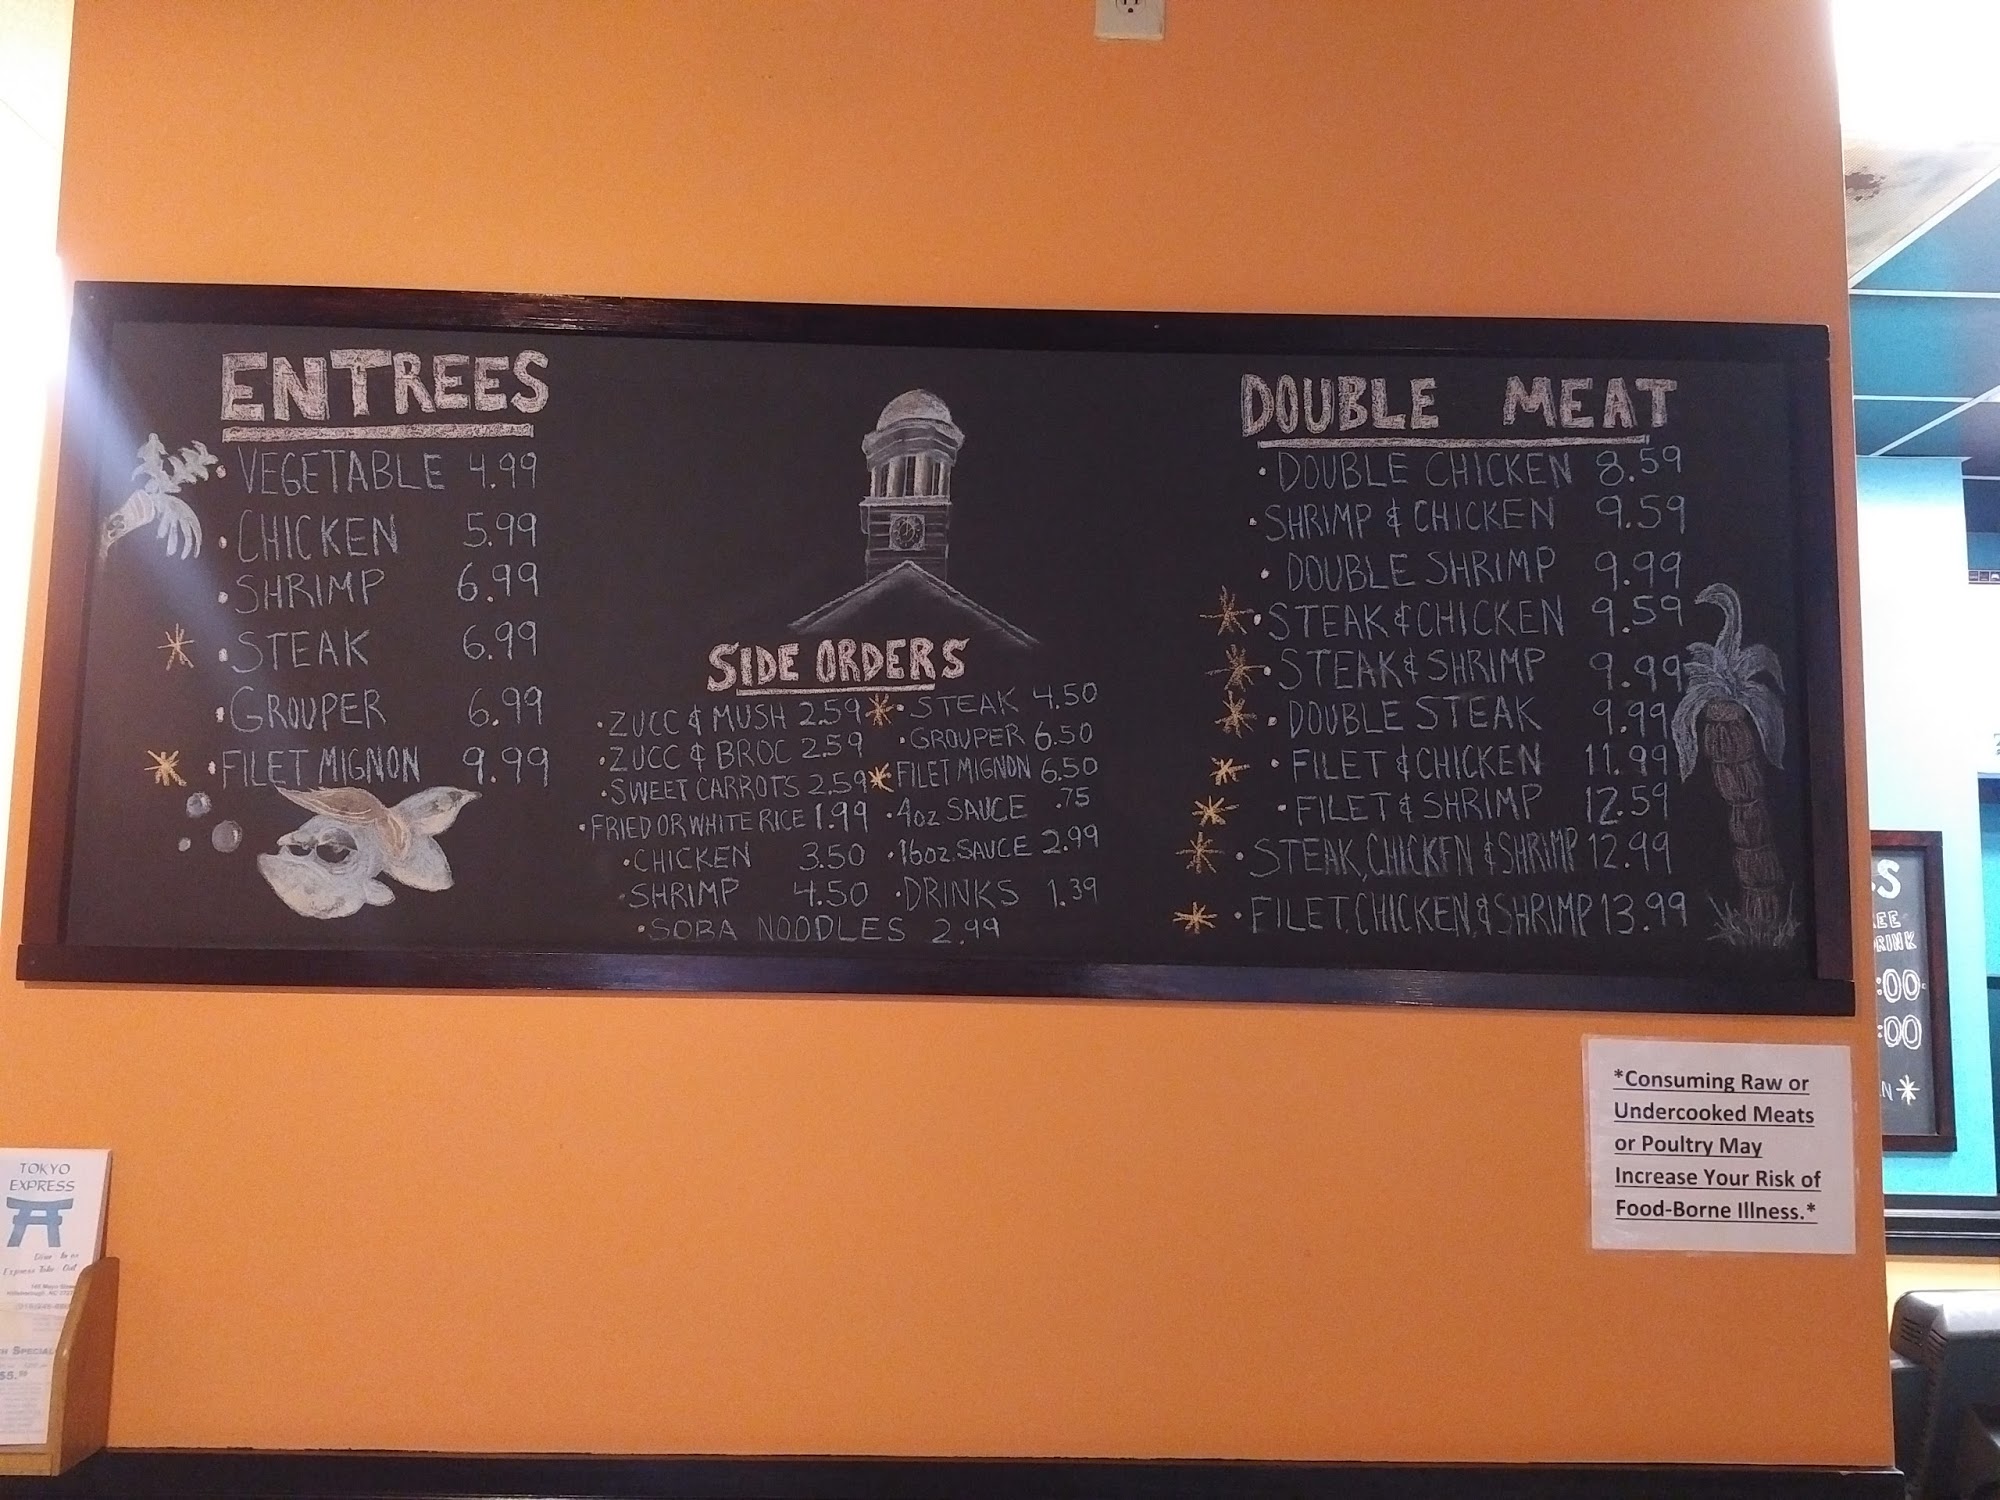 ENTREES
· VEGETABLE 4.99
· CHICKEN 5.99
· SHRIMP 6.99
* · STEAK 6.99
· GROUPER 6.99
* · FILET MIGNON 9.99
SIDE ORDERS
· ZUCC & MUSH 2.59
· ZUCC & BROC 2.59
· SWEET CARROTS 2.59
· FRIED OR WHITE RICE 1.99
· CHICKEN 3.50
· SHRIMP 4.50
· SOBA NOODLES 2.99
* · STEAK 4.50
· GROUPER 6.50
* · FILET MIGNON 6.50
· 4oz SAUCE .75
· 16oz. SAUCE 2.99
· DRINKS 1.39
DOUBLE MEAT
· DOUBLE CHICKEN 8.59
· SHRIMP & CHICKEN 9.59
· DOUBLE SHRIMP 9.99
* · STEAK & CHICKEN 9.59
* · STEAK & SHRIMP 9.99
* · DOUBLE STEAK 9.99
* · FILET & CHICKEN 11.99
* · FILET & SHRIMP 12.59
* · STEAK, CHICKEN & SHRIMP 12.99
* · FILET, CHICKEN, & SHRIMP 13.99
*Consuming Raw or
Undercooked Meats
or Poultry May
Increase Your Risk of
Food-Borne Illness.*
TOKYO
EXPRESS
Dine In or
Express Take Out
Hillsborough, NC
SPECIAL
RINK
:00
:00